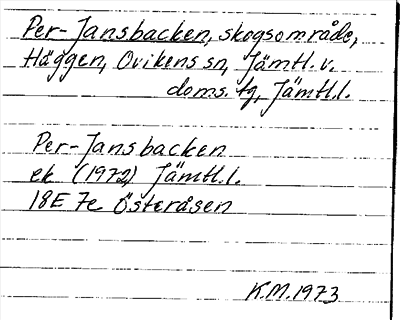 Per-Jansbacken, skogsområde,
Häggen, Ovikens sn, Jämtl. v.
doms. tg, Jämtl.l.
Per-Jansbacken
ek (1972) Jämtl.l.
18E 7e Österåsen
K.M.1973